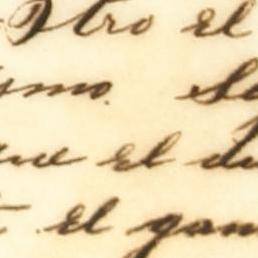 Otro el
smo. Se
que el du
el gan